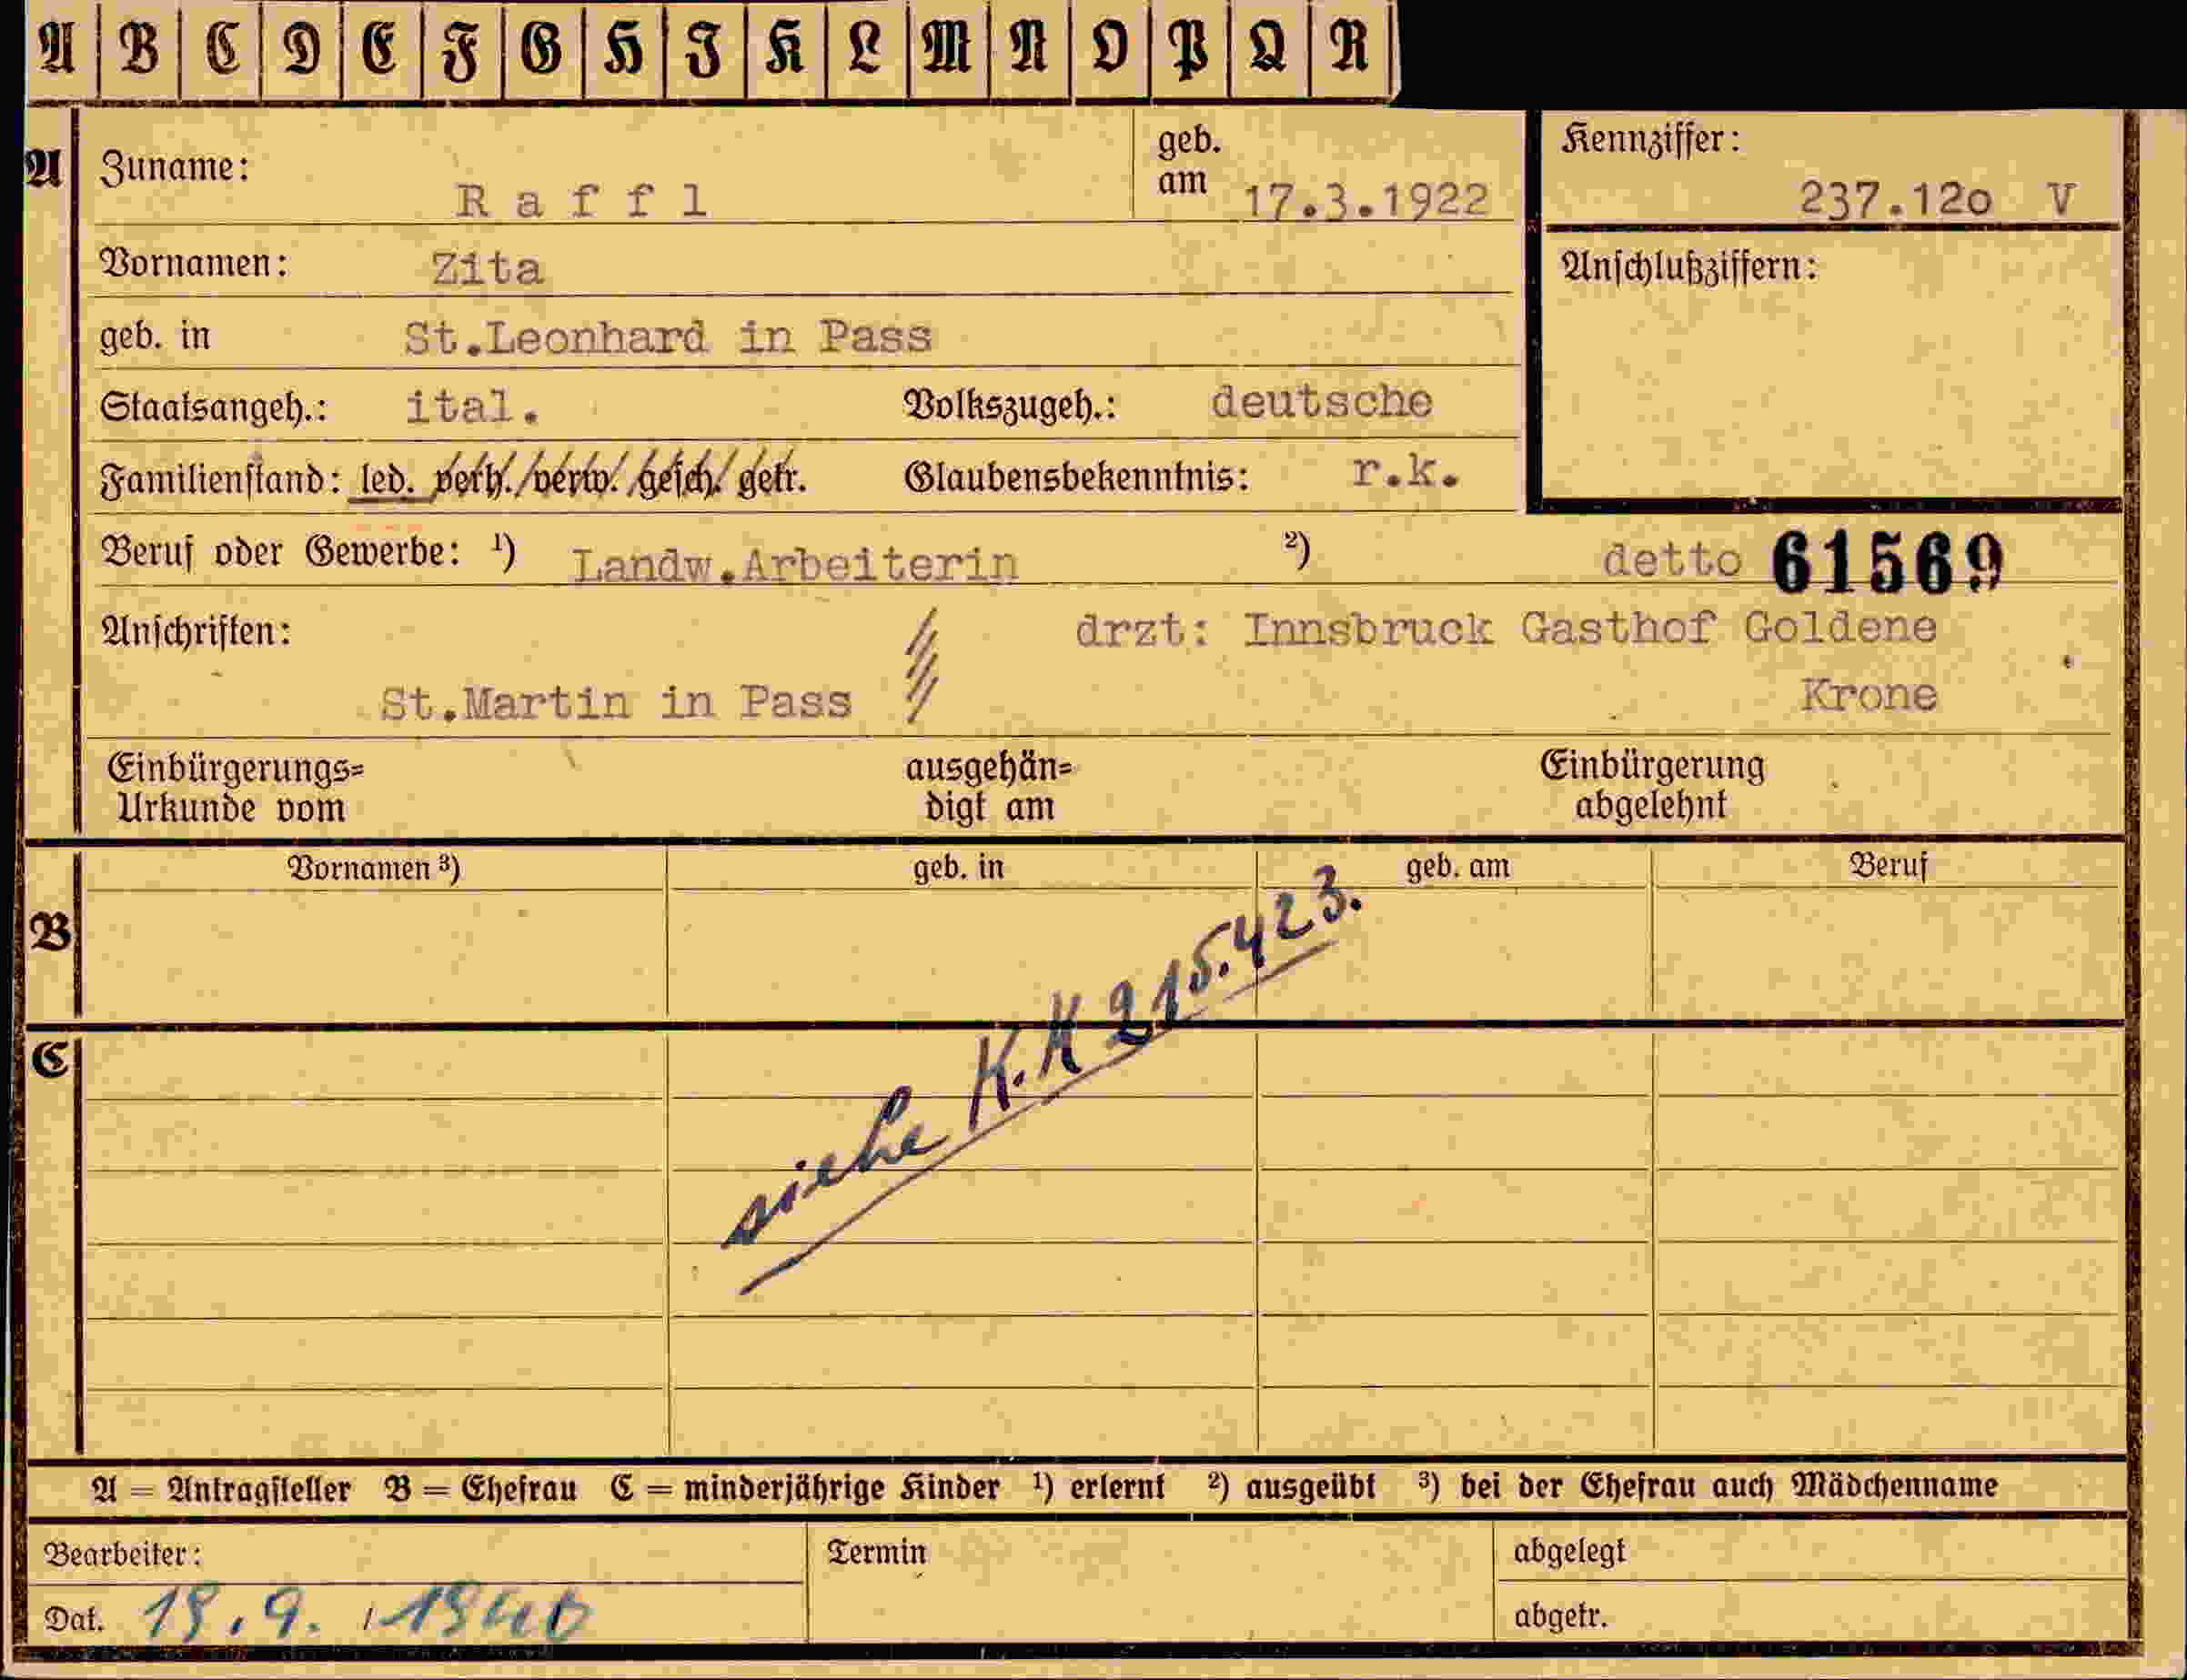 A B C D E F G H I K L M N O P Q R
A
Zuname: Raffl
geb. am 17.3.1922
Kennziffer: 237.12o V
Vornamen: Zita
Anschlußziffern:
geb. in St.Leonhard in Pass
Staatsangeh.: ital. Volkszugeh.: deutsche
Familienstand: led. verh./verw./gesch./getr. Glaubensbekenntnis: r.k.
Beruf oder Gewerbe: ¹) Landw.Arbeiterin ²) detto 61569
Anschriften: drzt: Innsbruck Gasthof Goldene
St.Martin in Pass Krone
Einbürgerungs= ausgehän= Einbürgerung
Urkunde vom digt am abgelehnt
Vornamen ³) geb. in geb. am Beruf
B
C
siehe K.K 215.423.
A = Antragsteller B = Ehefrau C = minderjährige Kinder ¹) erlernt ²) ausgeübt ³) bei der Ehefrau auch Mädchenname
Bearbeiter: Termin abgelegt
Dat. 19.9. 1940 abgetr.